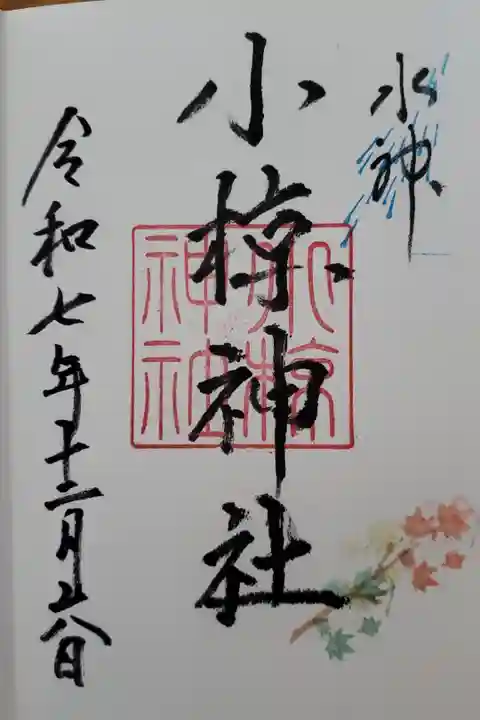 水神
小椋神社
小椋神社
令和七年十二月廿八日